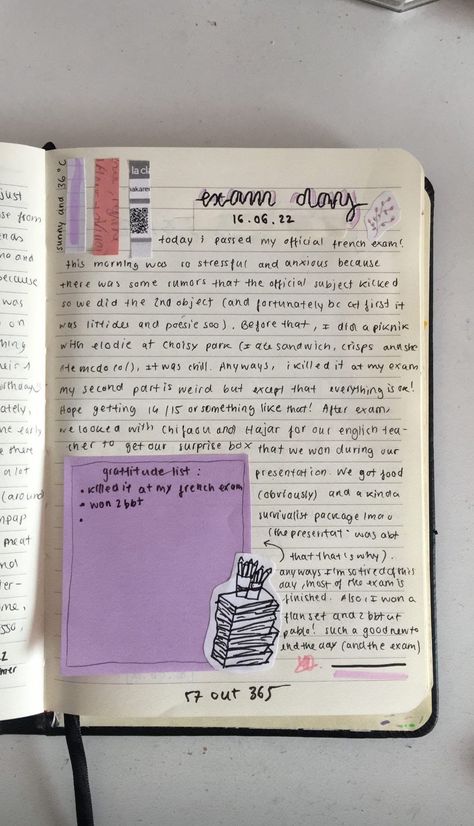 just
se from
ma and
because
was
on
thing
birthday
ately,
early
there
a lot
(around
meat
and
ter-
ome,
sso.
sunny and 36°C
la cla
makare
exam day
16.06.22
today i passed my official french exam!
this morning was so stressful and anxious because
there was some rumors that the official subject kicked
so we did the 2nd object (and fortunately bc at first it
was and poesie soo). Before that, i did a picknik
with elodie at choisy park (i ate sandwich, crisps and she
ate mcdo lol), it was chill. Anyways, i killed it at my exam
my second part is weird but except that everything is ok!
Hope getting 14/15 or something like that! After exam,
we looked with Chifaou and Hajar for our english tea-
cher to get our surprise box that we won during our
presentation. We got food
(obviously) and a kinda
survivalist package lmao
(the presentat° was abt
that that's why).
anyways i'm so tired of this
day, most of the exam is
finished. Also, i won a
flan set and 2 bbt at
pablo! such a good new to
end the day (and the exam)
grattitude list :
• killed it at my french exam
• won 2 bbt
•
57 out 365